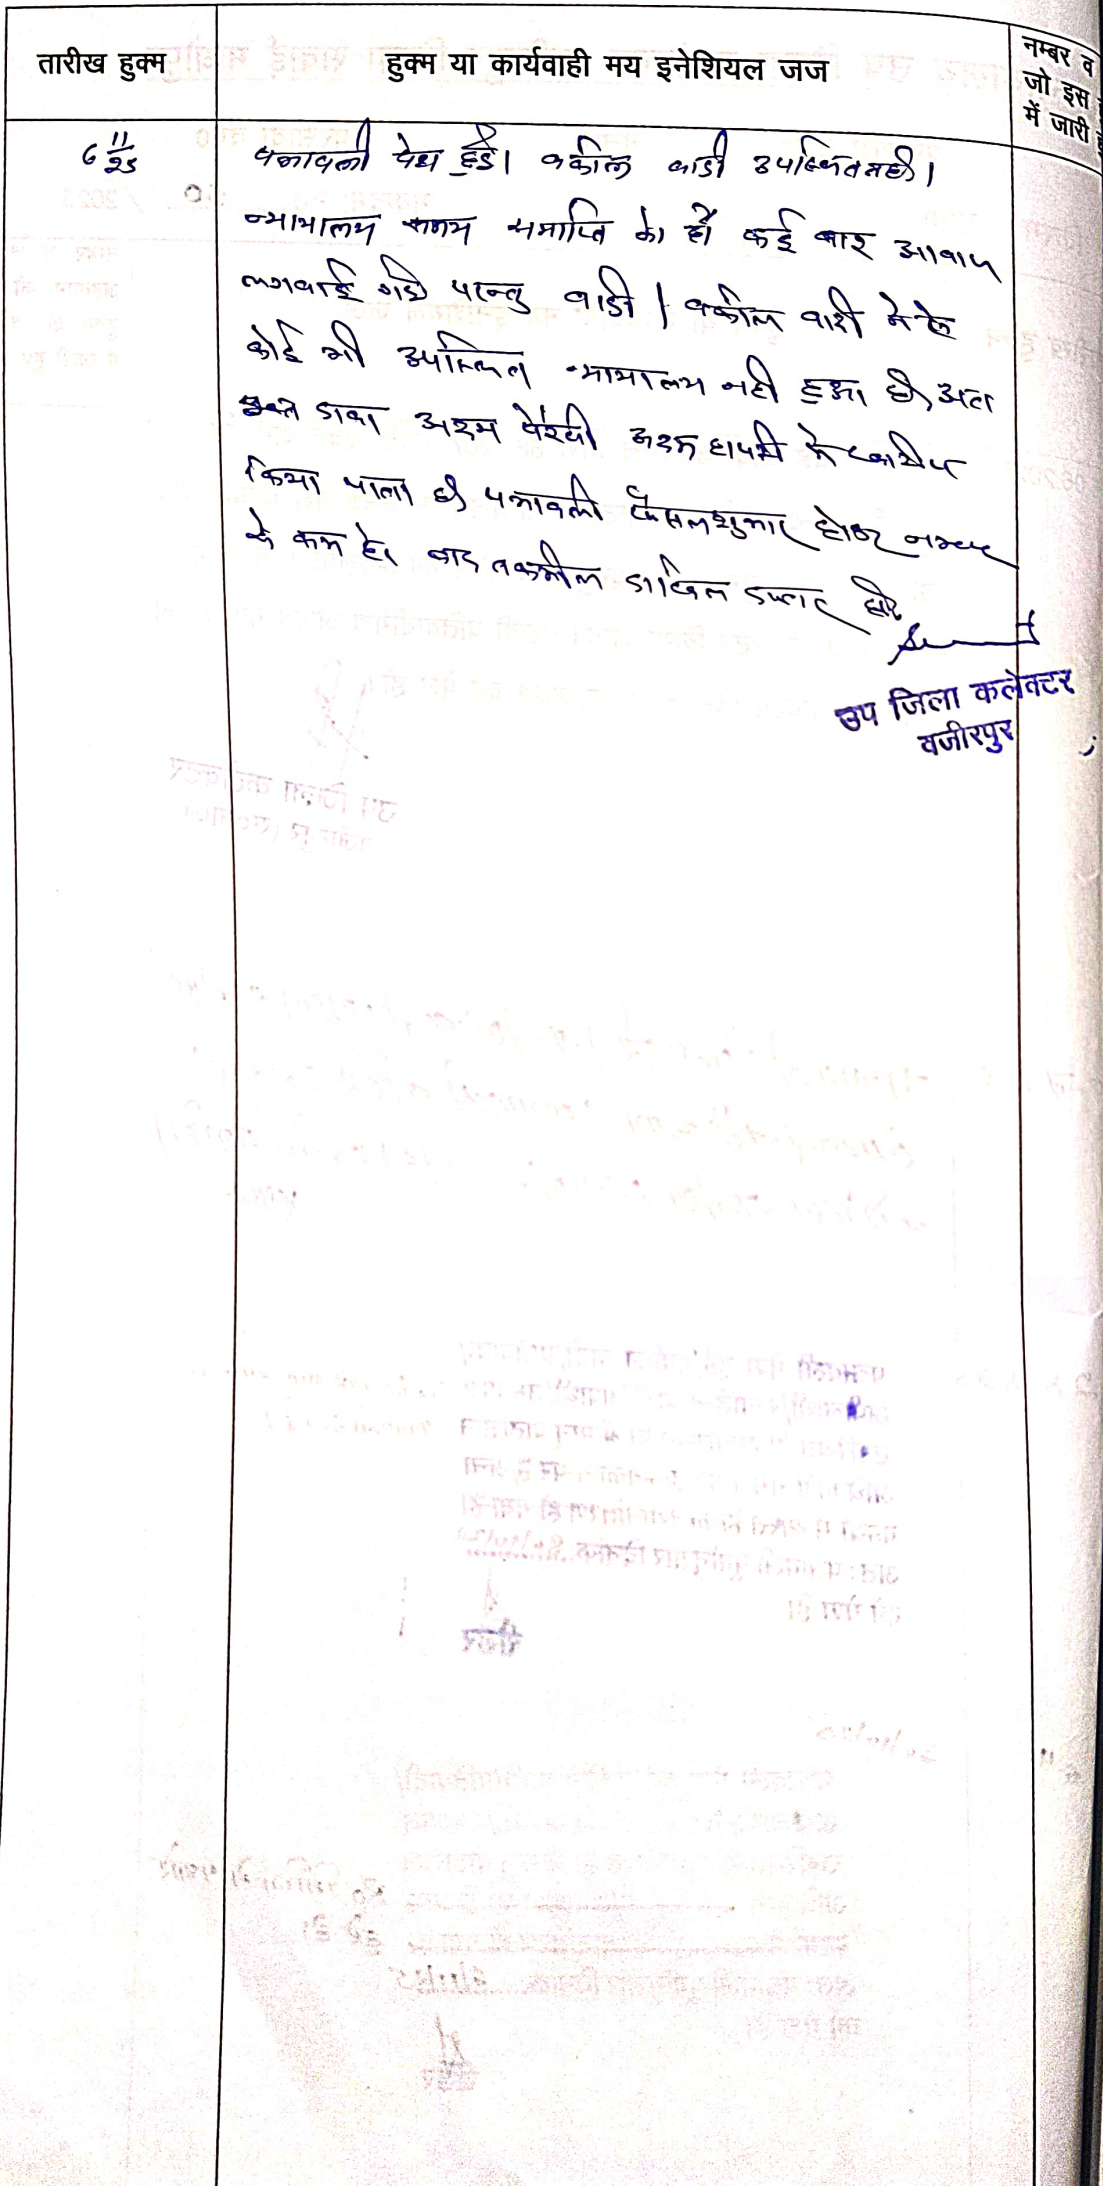 तारीख हुक्म
हुक्म या कार्यवाही मय इनेशियल जज
नम्बर व
जो इस
में जारी
6 11/25
पत्रावली पेश हुई। वकील वादी उपस्थित नही।
न्यायालय समय समाप्ति को है कई बार आवाज
लगवाई गई परन्तु वादी / वकील वादी मे से
कोई भी उपस्थित न्यायालय नही हुआ है, अतः
दावा अदम पैरवी अदम हाजरी मे खारीज
किया जाता है पत्रावली फैसलशुमार होकर नम्बर
से कम हो बाद तकमील दाखिल दफ्तर हो।
उप जिला कलेक्टर
वजीरपुर